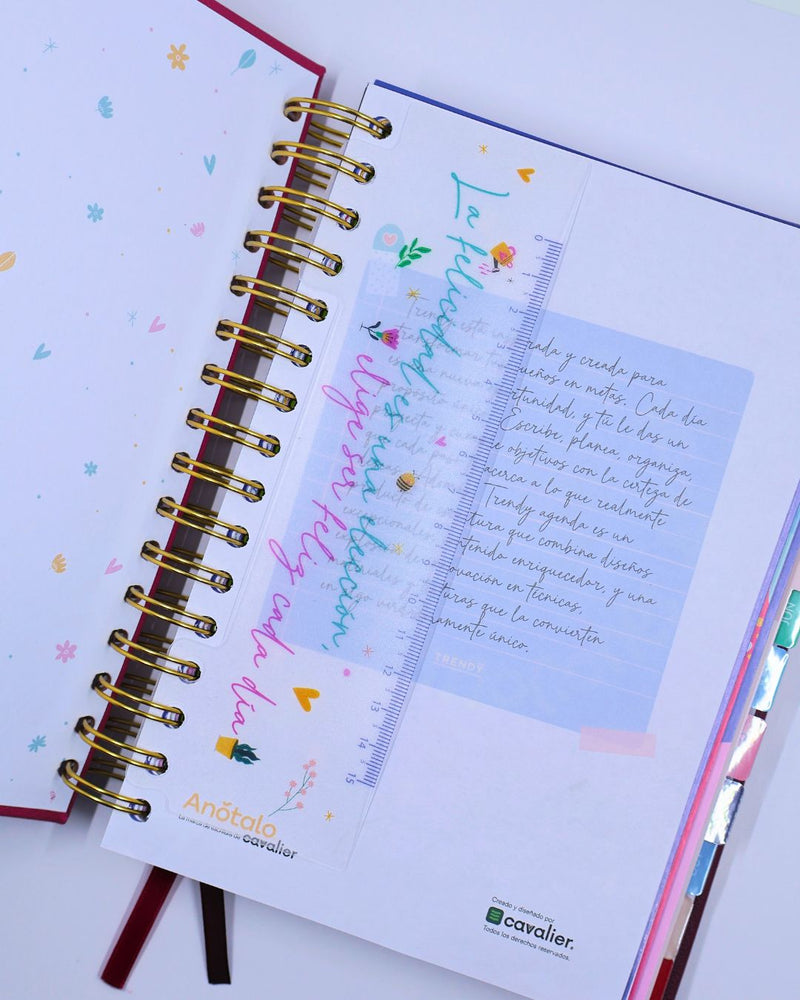 La felicidad es una elección,
elige ser feliz cada día
0 1 2 3 4 5 6 7 8 9 10 11 12 13 14 15
Anótalo
La marca de escritura de cavalier
Trendy está y creada para
sueños en metas. Cada día
oportunidad, y tú le das un
Escribe, planea, organiza,
proyecta y objetivos con la certeza de
que cada acerca a lo que realmente
Trendy agenda es un
que combina diseños
excepcionales, contenido enriquecedor, y una
innovación en técnicas,
materiales y que la convierten
en algo verdaderamente único.
TRENDY
Creado y diseñado por
cavalier.
Todos los derechos reservados.
JUN